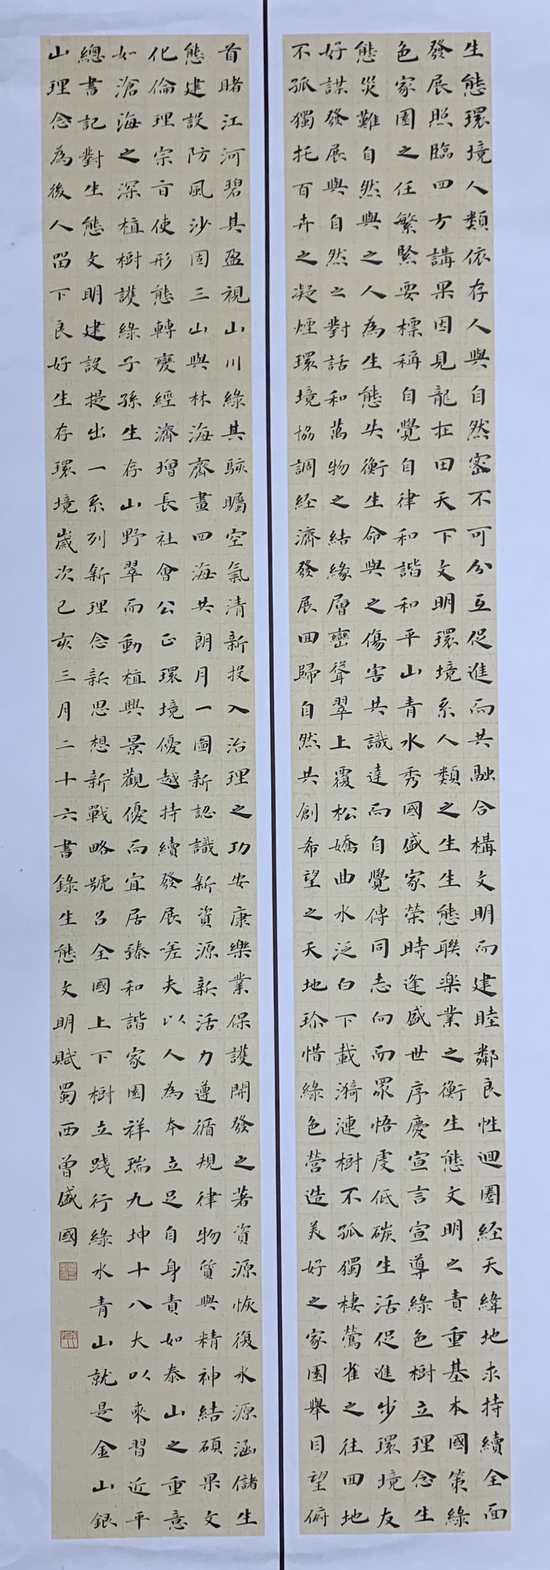 生態環境人類依存人與自然密不可分互促進而共融合構文明而建睦鄰良性迴圈经天緯地求持續全面
發展照臨四方講果因見龍在田天下文明環境系人類之生生態聯樂業之衡生態文明之責重基本國策綠
色家園之任繁緊要標稱自覺自律和諧和平山青水秀國盛家荣時逢盛世序慶宣言宣導綠色樹立理念生
態災難自然與之人為生態失衡生命與之傷害共識達而自覺傳同志向而眾悟虔低碳生活促進步環境友
好謀發展與自然之對話和萬物之結緣層巒聳翠上覆松嬌曲水泛白下載漪漣樹不孤獨棲鶯雀之往四地
不孤獨托百卉之凝煙環境協調经濟發展回歸自然共創希望之天地珍惜綠色營造美好之家園舉目望俯
首睹江河碧其盈視山川綠其駭矚空氣清新投入治理之功安康樂業保護開發之著資源恢復水源涵儲生
態建設防風沙固三山與林海齊畫四海共朗月一圖新認識新資源新活力遵循規律物質與精神結碩果文
化倫理宗旨使形態轉變經濟增長社會公正環境優越持續發展差夫以人為本立足自身責如泰山之重意
如滄海之深植樹護綠子孫生存山野翠而動植興景觀優而宜居臻和諧家園祥瑞九坤十八大以來習近平
總書記對生態文明建設提出一系列新理念新思想新戰略號召全國上下樹立踐行綠水青山就是金山銀
山理念為後人留下良好生存環境歲次己亥三月二十六書錄生態文明賦蜀西曾盛國